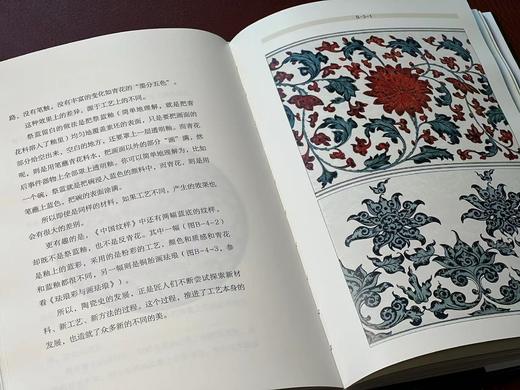 B-3-4
路，没有笔触，没有丰富的变化如青花的“墨分五色”。
这种效果上的差异，源于工艺上的不同。
祭蓝留白的做法是把祭蓝釉（简单地理解，就是把青
花料溶入了釉里）均匀地覆盖素坯的表面，只是要把画面的
部分给空出来，空白的地方，还要罩上一层透明釉。而青花
呢，则是用笔蘸青花料水，把画面以外的部分“画”满，然
后事件器物上全部罩上透明釉。你可以简单地理解为，比如
一个碗，祭蓝就是把碗没入蓝色的颜料中，而青花，则是用
笔蘸上蓝色，把碗的表面涂满。
所以即使是同样的材料，如果工艺不同，产生的效果也
会有很大的差别。
更有趣的是，《中国纹样》中还有两幅蓝底的纹样，
却既不是祭蓝釉，也不是反青花。其中一幅（图B-4-2）
是釉上的蓝彩，采用的是粉彩的工艺，颜色和质感和青花
和蓝釉都很不同，另一幅则是铜胎珐琅（图B-4-3，参
看《珐琅彩与画珐琅》）。
所以，陶瓷史的发展，正是匠人们不断尝试探索新材
料、新工艺、新方法的过程。这个过程，推进了工艺本身的
发展，也造就了众多新的不同的美。